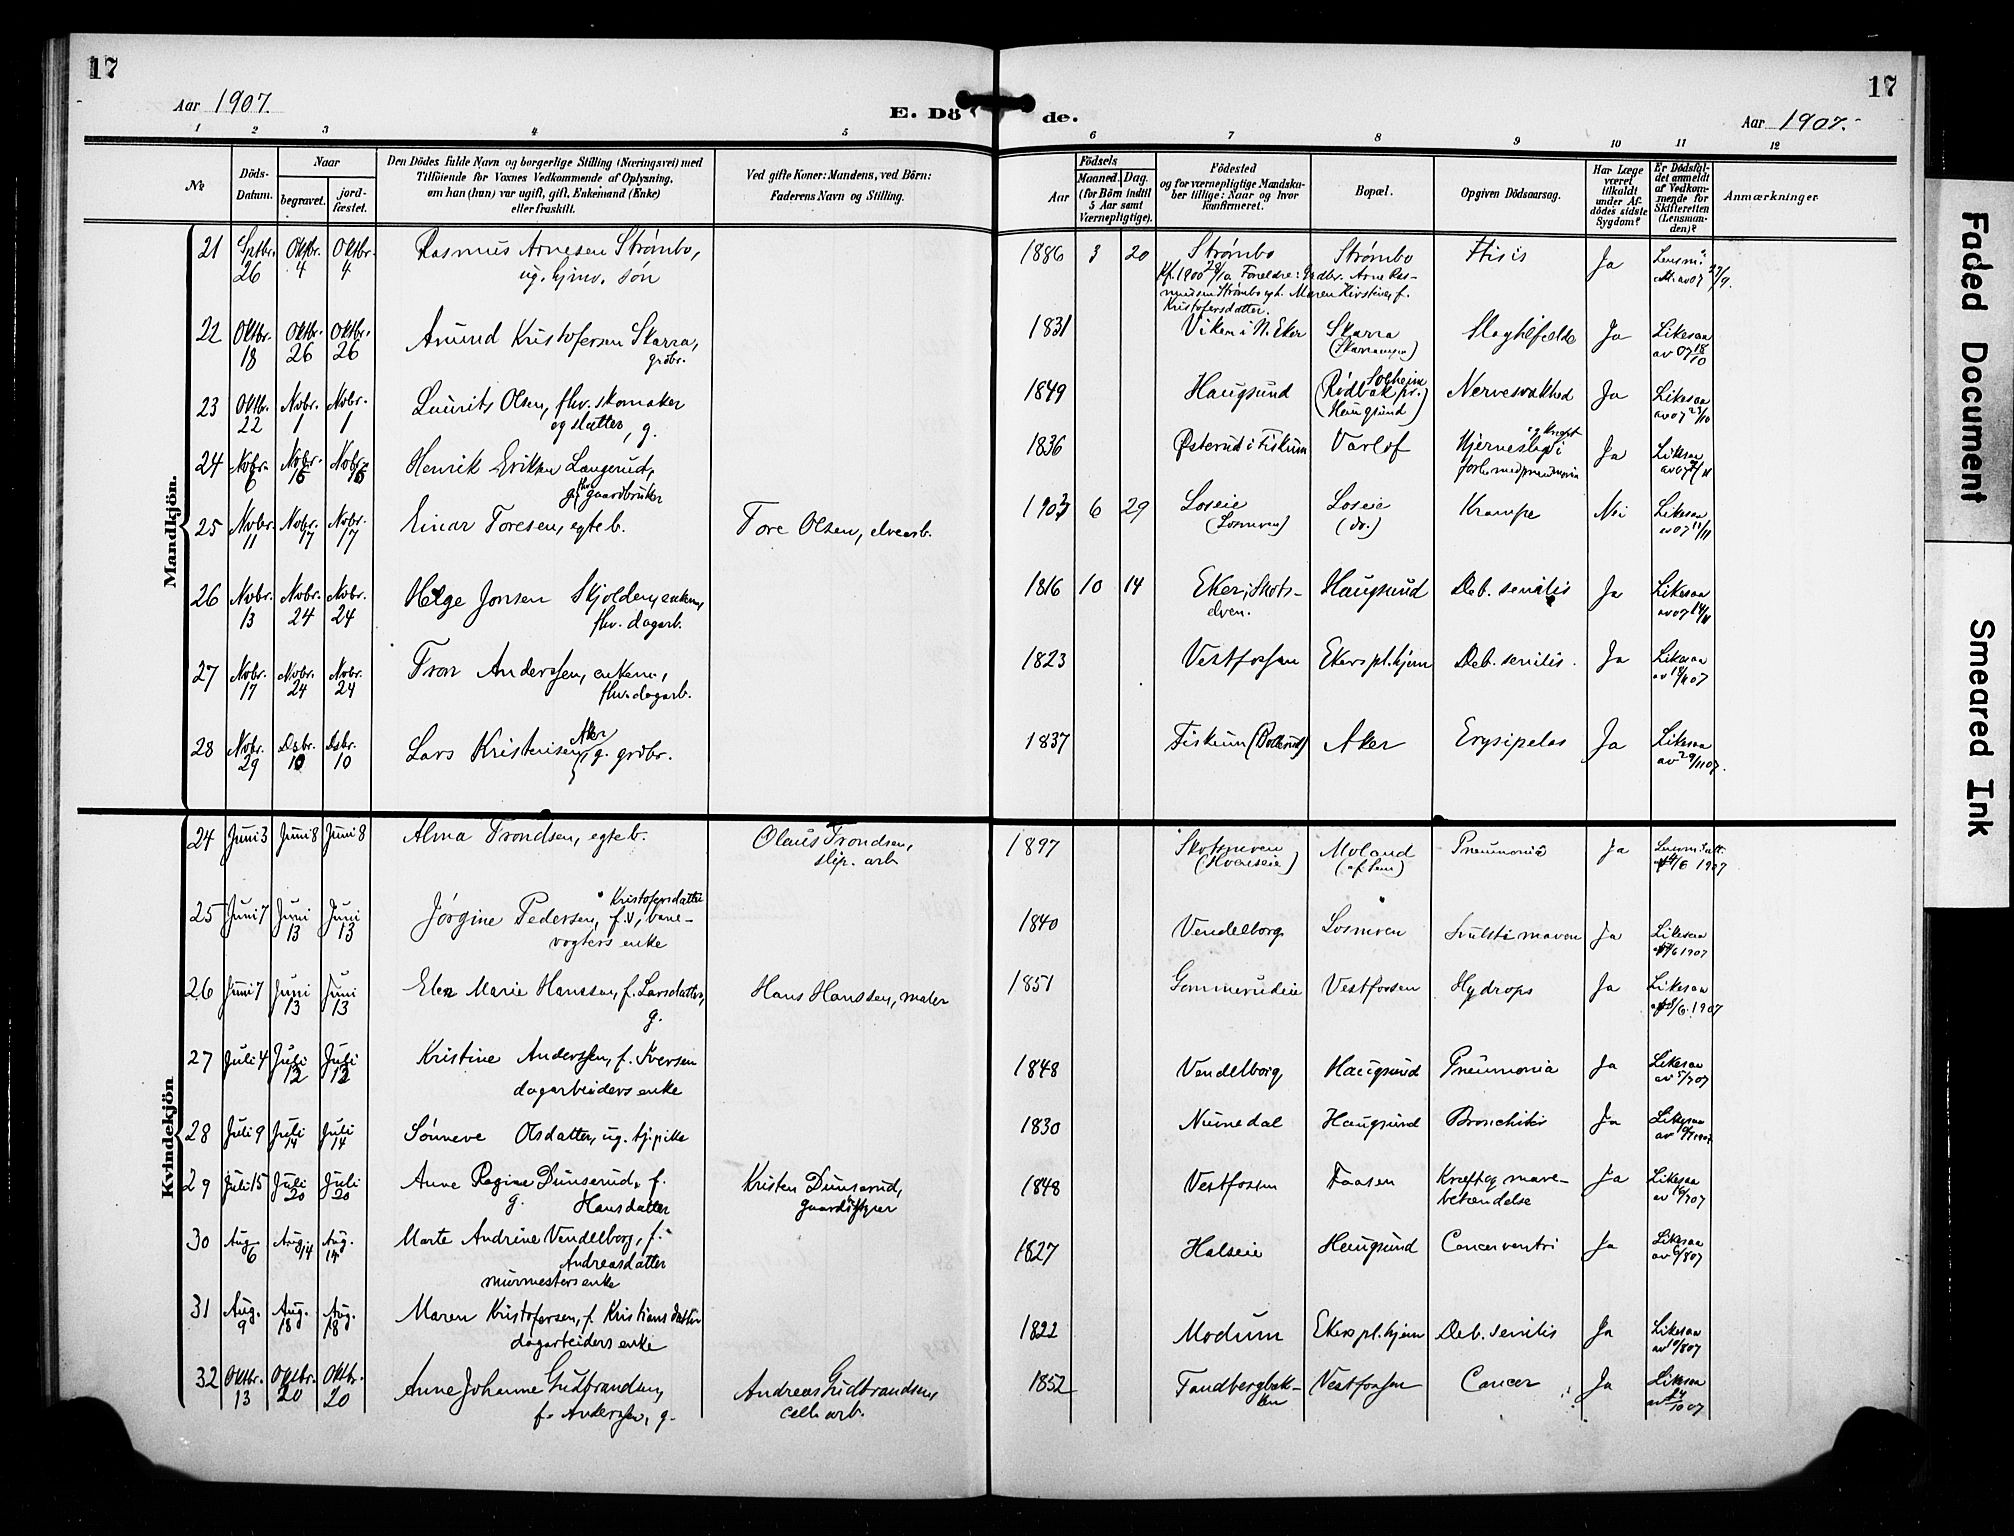 17
17
Aar 1907.
E. Dö de.
Aar 1907.
1 2 3 4 5 6 7 8 9 10 11 12
№
Döds-Datum.
Naar
begravet.
jord-fæstet.
Den Dödes fulde Navn og borgerlige Stilling (Næringsvei) med
Tilföiende for Voxnes Vedkommende af Oplysning,
om han (hun) var ugift, gift, Enkemand (Enke)
eller fraskilt.
Ved gifte Koner: Mandens, ved Börn:
Faderens Navn og Stilling.
Födsels
Aar
Maaned. Dag.
(for Börn indtil
5 Aar samt
Værnepligtige).
Födested
og for værnepligtige Mandska-
ber tillige: Naar og hvor
konfirmeret.
Bopæl.
Opgiven Dödsaarsag.
Har Læge
været
tilkaldt
under Af-
dödes sidste
Sygdom?
Er Dödsfal-
det anmeldt
af Vedkom-
mende for
Skifteretten
(Lensman-
den)?
Anmærkninger
Mandkjön.
21 Sptbr. 26 Oktbr. 4 Oktbr. 4 Rasmus Arnesen Strømbo, 1886 3 20 Strømbo Strømbo Ja
ug. hjmv. søn
Kf. 1900 Foreldre: Grdbr. Arne Ras-
mussen Strømbo og h. Maren Kirstine, f.
Kristofersdatter.
22 Oktbr. 18 Oktbr. 26 Oktbr. 26 Amund Kristofersen Skarra, 1831 Viken i N. Eker Skarra Slagtilfælde Ja Likesaa
grdbr. av 07 18/10
23 Oktbr. 22 Nvbr. 1 Nvbr. 1 Laurits Olsen, fhv. skomaker 1849 Haugsund Solheim (Rødbæk pr. Haugsund) Nervesvakhed Ja Likesaa
og slatter, g. av 07 23/10
24 Nvbr. 6 Nvbr. Nvbr. Henrik Eriksen Langerud, 1836 Østerud i Fiskum Varlof Hjerneslag i Ja Likesaa
g. fhv. gaardbruker forb. med pneumonia
25 Nvbr. 11 Nvbr. 17 Nvbr. 17 Einar Toresen, egteb. Tore Olsen, elvearb. 1903 6 29 Loseie Loseie Krampe Nei Likesaa
(Losmoen) (do.) av 07 11/11
26 Nvbr. 13 Nvbr. 24 Nvbr. 24 Helge Jonsen Skjolden, enkem, 1816 10 14 Eker, Skots- Haugsund Deb. senilis Ja Likesaa
fhv. dagarb. elven. av 07 14/11
27 Nvbr. 17 Nvbr. 24 Nvbr. 24 Tron Anderssen, enkem., 1823 Vestfossen Ekers pl.hjem Deb. senilis. Ja Likesaa
fhv. dagarb.
28 Nvbr. 29 Dsbr. 10 Dsbr. 10 Lars Kristensen Aker, g. grdbr. 1837 Fiskum (Bollerud) Aker Erysipelas Ja Likesaa
av 29/11 07.
Kvindekjön
24 Juni 3 Juni 8 Juni 8 Alma Trondsen, egteb. Olaus Trondsen, 1897 Skotsmoen Moland Pneumonia Ja
slip. arb (Hvaleseie) (af Sem) 4/6 1907
25 Juni 7 Juni 13 Juni 13 Jørgine Pedersen, f. Kristofersdatter, bane- 1840 Vendelborg Losmoen Svulst i maven Ja Likesaa
vogters enke
26 Juni 7 Juni 13 Juni 13 Elen Marie Hanssen, f. Larsdatter, Hans Hanssen, maler 1851 Gommerudeie Vestfossen Hydrops Ja Likesaa
g. 8/6 1907
27 Juli 4 Juli 12 Juli 12 Kristine Anderssen, f. Iversen 1848 Vendelborg Haugsund Pneumonia Ja Likesaa
dagarbeiders enke av 5/7 07
28 Juli 9 Juli 14 Juli 14 Sønneve Olsdatter, ug. tj.pike 1830 Numedal Haugsund Bronchitis Ja Likesaa
29 Juli 15 Juli 20 Juli 20 Anne Regine Dunserud, f. Kristen Dunserud, 1848 Vestfossen Faasen Kræft og mave- Ja Likesaa
g. Hansdatter betændelse av 16/7 07
30 Aug. 6 Aug. 14 Aug. 14 Marte Andrine Vendelborg, f. 1827 Halseie Haugsund Cancer ventri Ja Likesaa
Andreasdatter av 6/8 07
murmesters enke
31 Aug. 9 Aug. 18 Aug. 18 Maren Kristofersen, f. Kristiansdatter 1822 Modum Ekers pl.hjem Deb. senilis Ja Likesaa
dagarbeiders enke av 10/8 07
32 Oktbr. 13 Oktbr. 20 Oktbr. 20 Anne Johanne Gudbrandsen, Andreas Gudbrandsen, 1852 Tandbergbak- Vestfossen Cancer Ja Likesaa
f. Anderssen, g. cellr. arb. ken av 14/10 07
Faded Document
Smeared Ink